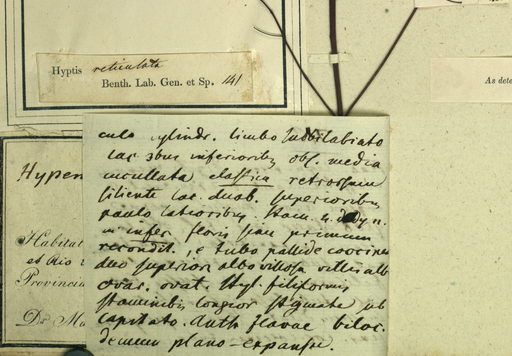 Hyptis reticulata
Benth. Lab. Gen. et Sp. 141
As dete
Hypen
Habitat
et Rio
Provincia
Dr Ma
culo cylindr. limbo subbilabiato
lac 3bus inferiorib obs. media
cucullata elastica retrorsum
siliente lac. duab. superiorib
paulo latiorib. Stam. 4 didyn.
in infer. floris primum
recondit., e tubo pallide coccineo
duo superiori albo villosa villis alb
ovar. ovat. Styl. filiformis
staminibs longior stigmate sub
capitato. Anth flavae biloc.
demum plano-expansae.